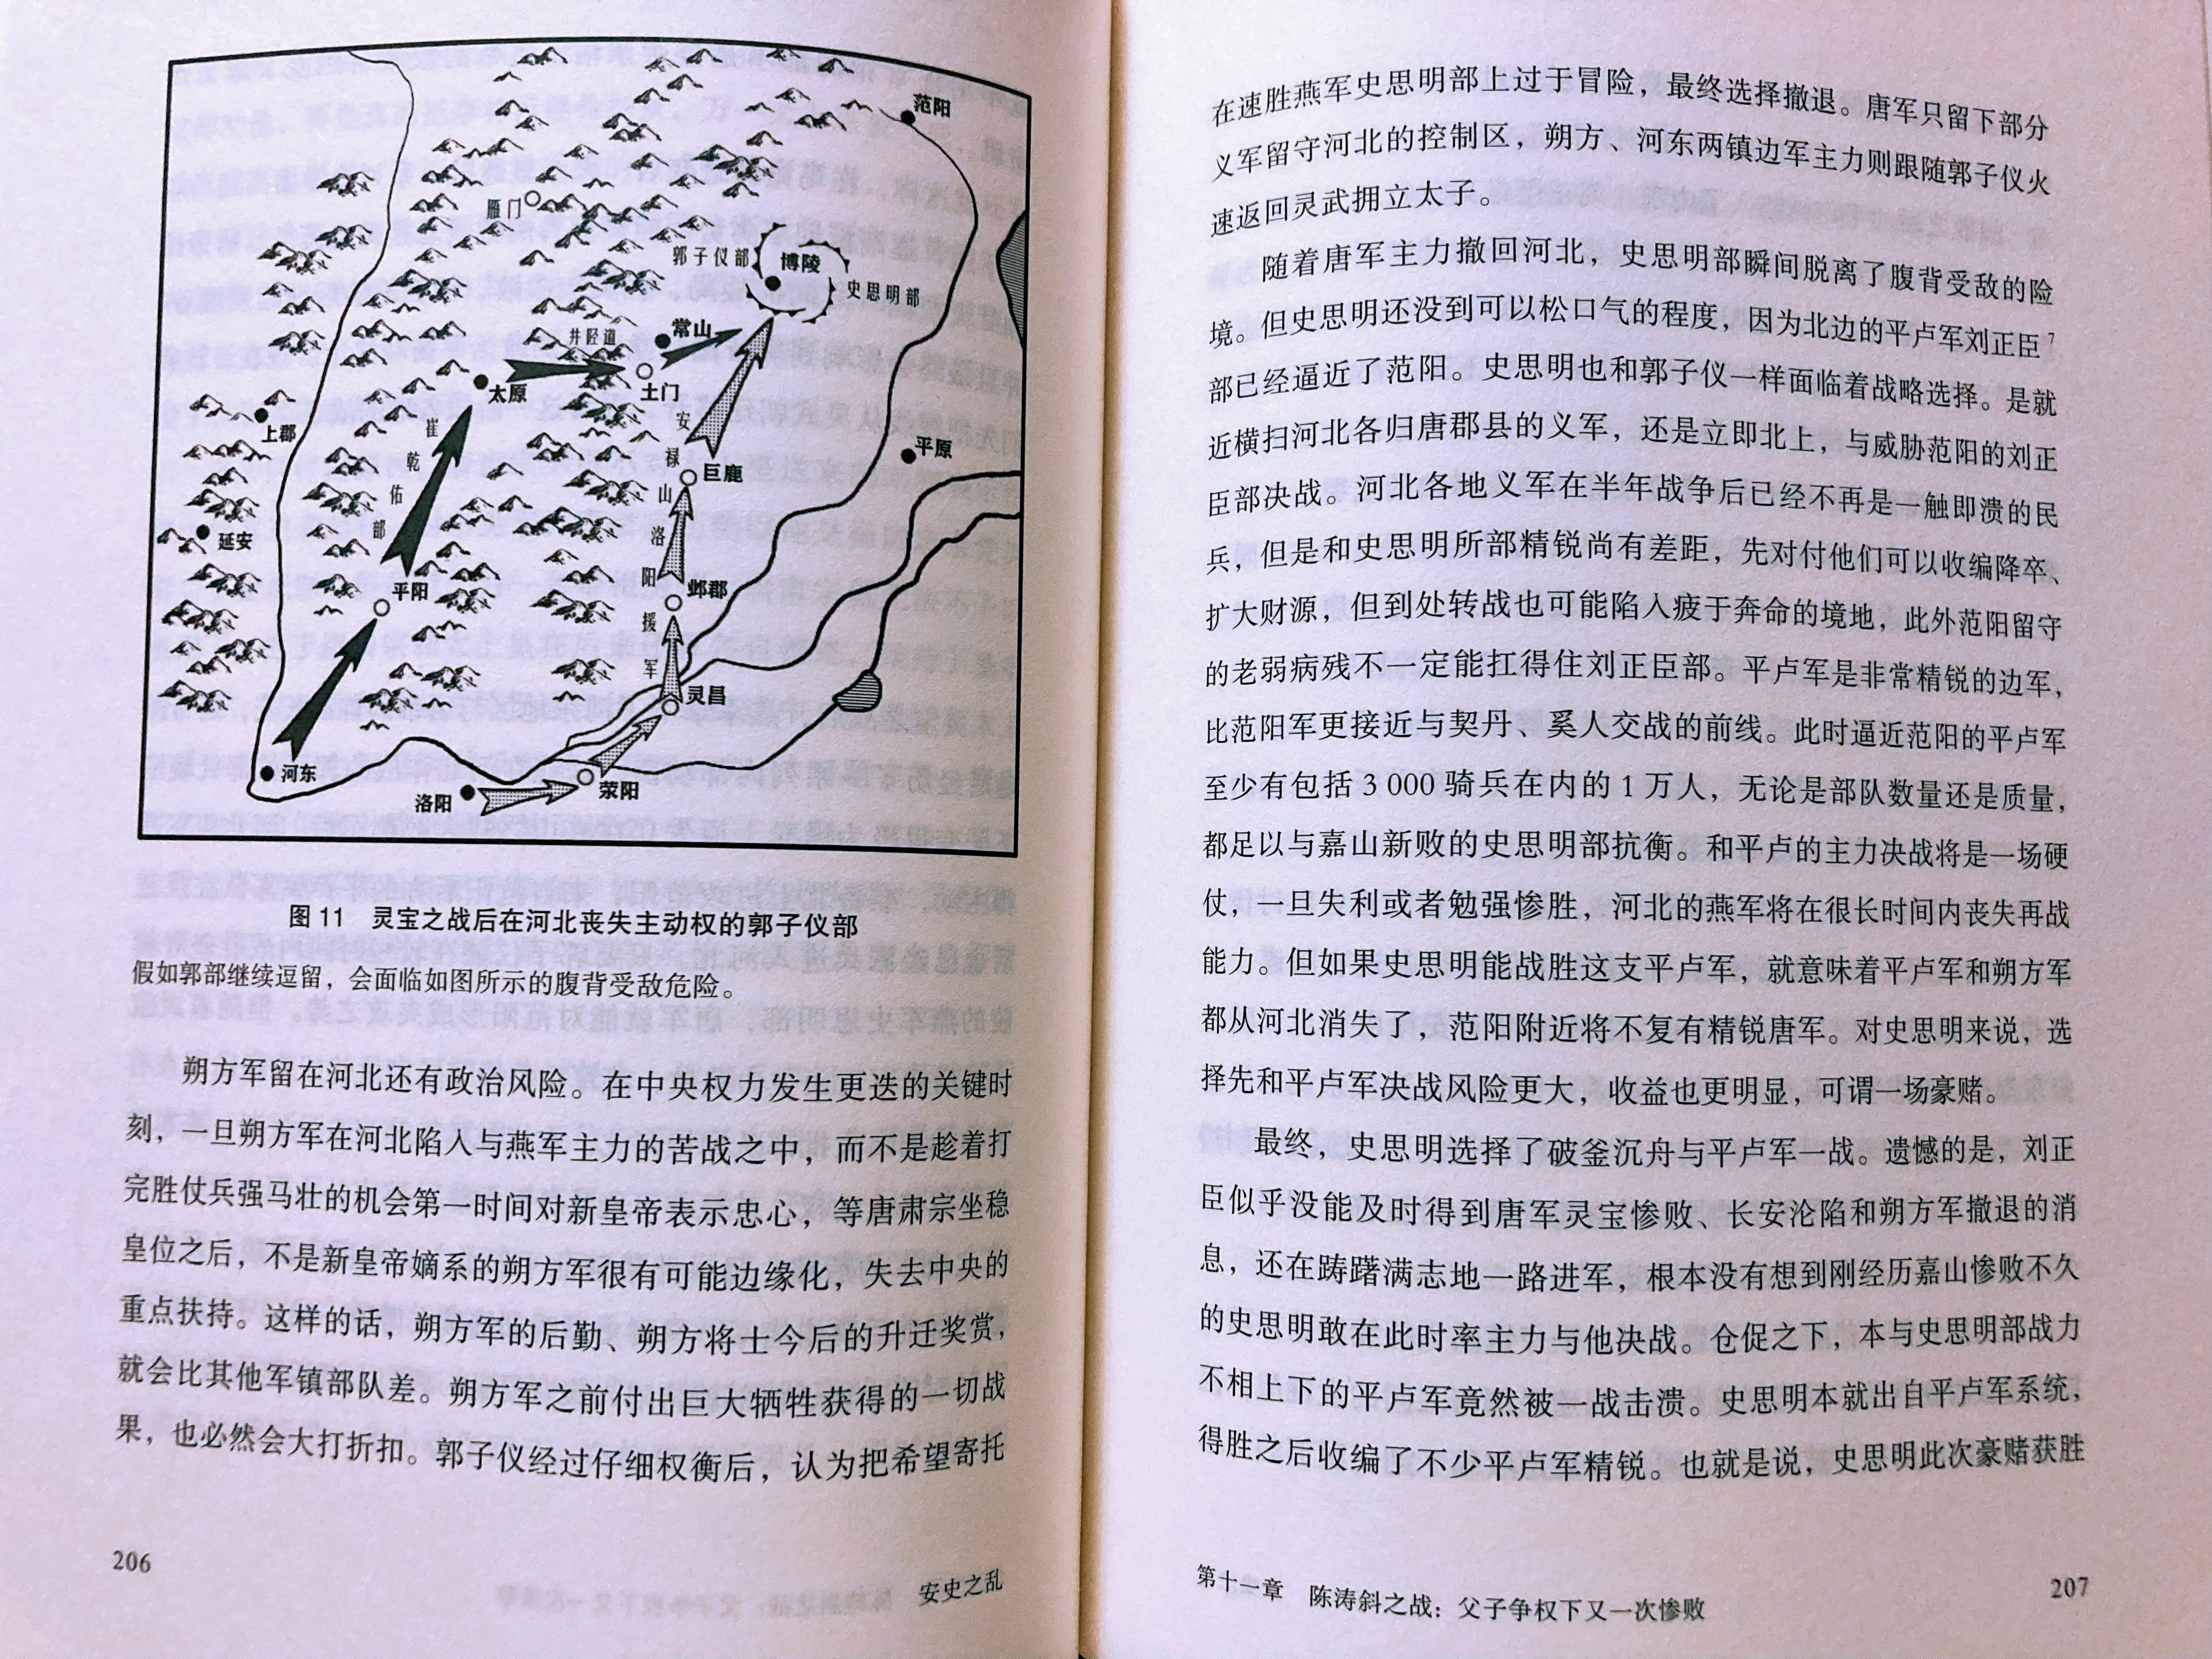 范阳
雁门
郭子仪部
博陵
史思明部
井陉道
常山
太原
土门
安禄山洛阳援军
崔乾佑部
上郡
巨鹿
平原
延安
邺郡
平阳
灵昌
河东
洛阳
荥阳
图 11 灵宝之战后在河北丧失主动权的郭子仪部
假如郭部继续逗留，会面临如图所示的腹背受敌危险。
朔方军留在河北还有政治风险。在中央权力发生更迭的关键时
刻，一旦朔方军在河北陷入与燕军主力的苦战之中，而不是趁着打
完胜仗兵强马壮的机会第一时间对新皇帝表示忠心，等唐肃宗坐稳
皇位之后，不是新皇帝嫡系的朔方军很有可能边缘化，失去中央的
重点扶持。这样的话，朔方军的后勤、朔方将士今后的升迁奖赏，
就会比其他军镇部队差。朔方军之前付出巨大牺牲获得的一切战
果，也必然会大打折扣。郭子仪经过仔细权衡后，认为把希望寄托
206
安史之乱
在速胜燕军史思明部上过于冒险，最终选择撤退。唐军只留下部分
义军留守河北的控制区，朔方、河东两镇边军主力则跟随郭子仪火
速返回灵武拥立太子。
随着唐军主力撤回河北，史思明部瞬间脱离了腹背受敌的险
境。但史思明还没到可以松口气的程度，因为北边的平卢军刘正臣7
部已经逼近了范阳。史思明也和郭子仪一样面临着战略选择。是就
近横扫河北各归唐郡县的义军，还是立即北上，与威胁范阳的刘正
臣部决战。河北各地义军在半年战争后已经不再是一触即溃的民
兵，但是和史思明所部精锐尚有差距，先对付他们可以收编降卒、
扩大财源，但到处转战也可能陷入疲于奔命的境地，此外范阳留守
的老弱病残不一定能扛得住刘正臣部。平卢军是非常精锐的边军，
比范阳军更接近与契丹、奚人交战的前线。此时逼近范阳的平卢军
至少有包括 3 000 骑兵在内的 1 万人，无论是部队数量还是质量，
都足以与嘉山新败的史思明部抗衡。和平卢的主力决战将是一场硬
仗，一旦失利或者勉强惨胜，河北的燕军将在很长时间内丧失再战
能力。但如果史思明能战胜这支平卢军，就意味着平卢军和朔方军
都从河北消失了，范阳附近将不复有精锐唐军。对史思明来说，选
择先和平卢军决战风险更大，收益也更明显，可谓一场豪赌。
最终，史思明选择了破釜沉舟与平卢军一战。遗憾的是，刘正
臣似乎没能及时得到唐军灵宝惨败、长安沦陷和朔方军撤退的消
息，还在踌躇满志地一路进军，根本没有想到刚经历嘉山惨败不久
的史思明敢在此时率主力与他决战。仓促之下，本与史思明部战力
不相上下的平卢军竟然被一战击溃。史思明本就出自平卢军系统，
得胜之后收编了不少平卢军精锐。也就是说，史思明此次豪赌获胜
第十一章 陈涛斜之战：父子争权下又一次惨败
207